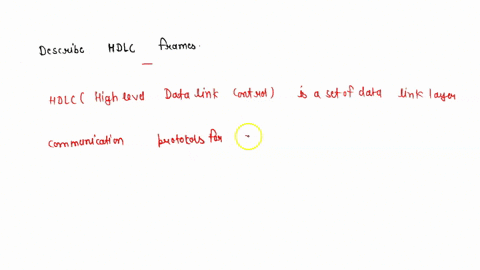 Describe HDLC frames.
HDLC ( High level Data link Control) is a set of data link layer
communication protocols for